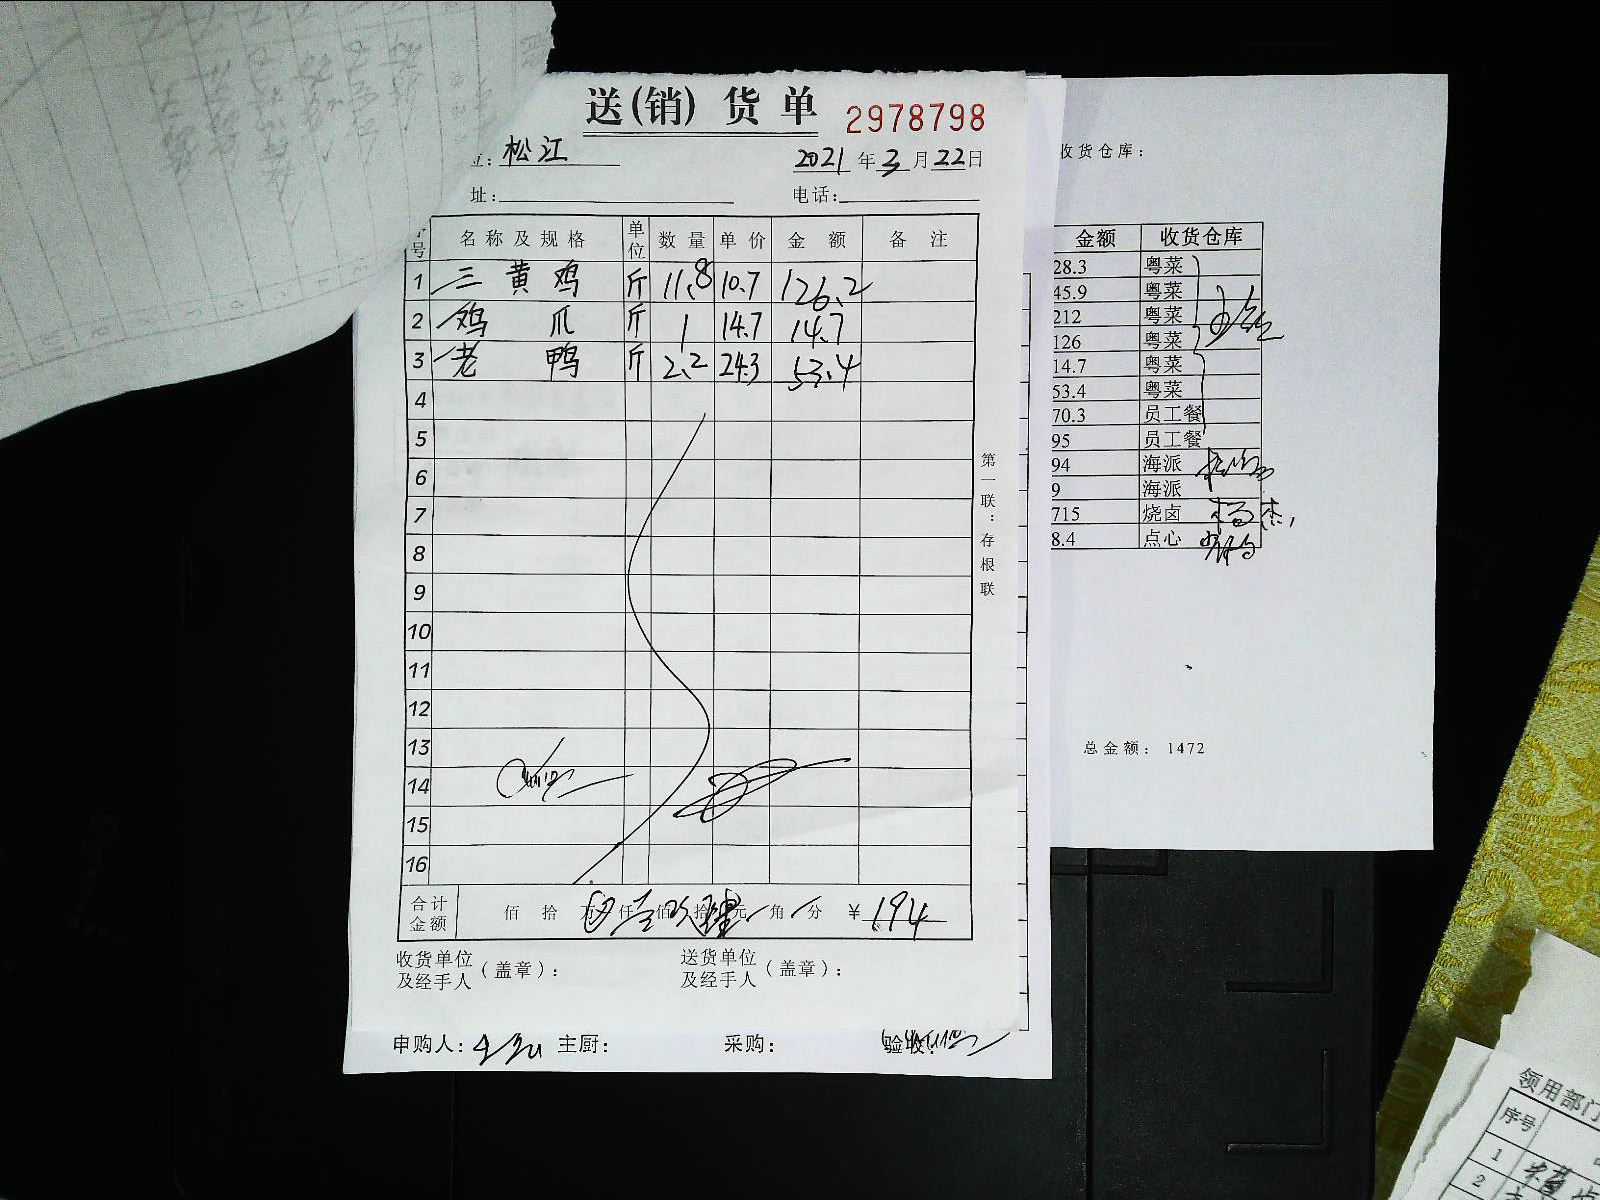 送(销)货单 2978798
位: 松江 2021年3月22日
址: 电话:
号 名称及规格 单位 数量 单价 金额 备注
1 三黄鸡 斤 11.8 10.7 126.2
2 鸡爪 斤 1 14.7 14.7
3 老鸭 斤 2.2 24.3 53.4
4
5
6
7
8
9
10
11
12
13
14
15
16
合计金额 佰 拾 万 仟 佰 拾 元 角 分 ¥ 194
收货单位及经手人(盖章): 送货单位及经手人(盖章):
第一联:存根联
申购人: 主厨: 采购: 验收:
收货仓库:
金额 收货仓库
28.3 粤菜
45.9 粤菜
212 粤菜
126 粤菜
14.7 粤菜
53.4 粤菜
70.3 员工餐
95 员工餐
94 海派
9 海派
715 烧卤
8.4 点心
总金额: 1472
领用部门
序号
1
2